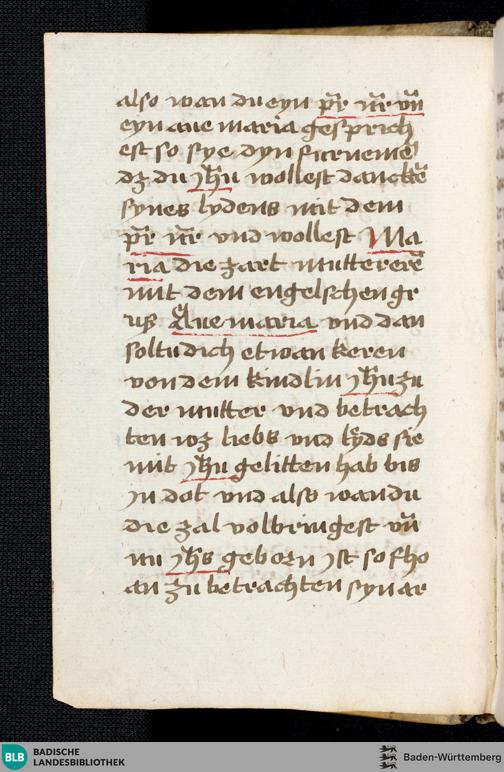 also wan du eyn pr̄ nr̄ vn̄
eyn aue maria gesprich
est so sye dyn furneme
dz du jhū wollest dancke͂
synes lydens mit dem
pr̄ nr̄ vnd wollest Ma
ria die zart mutter ere͂
mit dem engelschen gr
uß Aue maria vnd dan
soltu dich etwan keren
von dem kindlin jhū zu
der mutter vnd betrach
ten wz liebs vnd lyds sie
mit jhū gelitten hab bis
jn dot vnd also wan du
die zal volbringest vn̄
nu jhs geborn jst so fho
an zu betrachten syn ar
BLB BADISCHE
LANDESBIBLIOTHEK
Baden-Württemberg